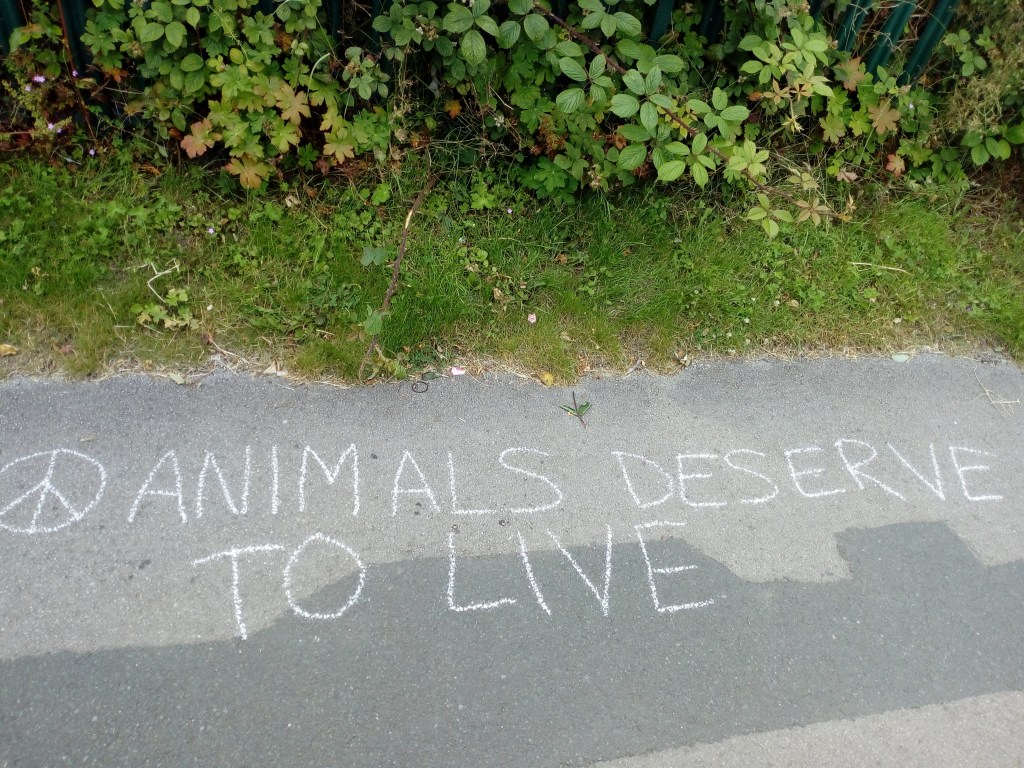 ANIMALS DESERVE
TO LIVE